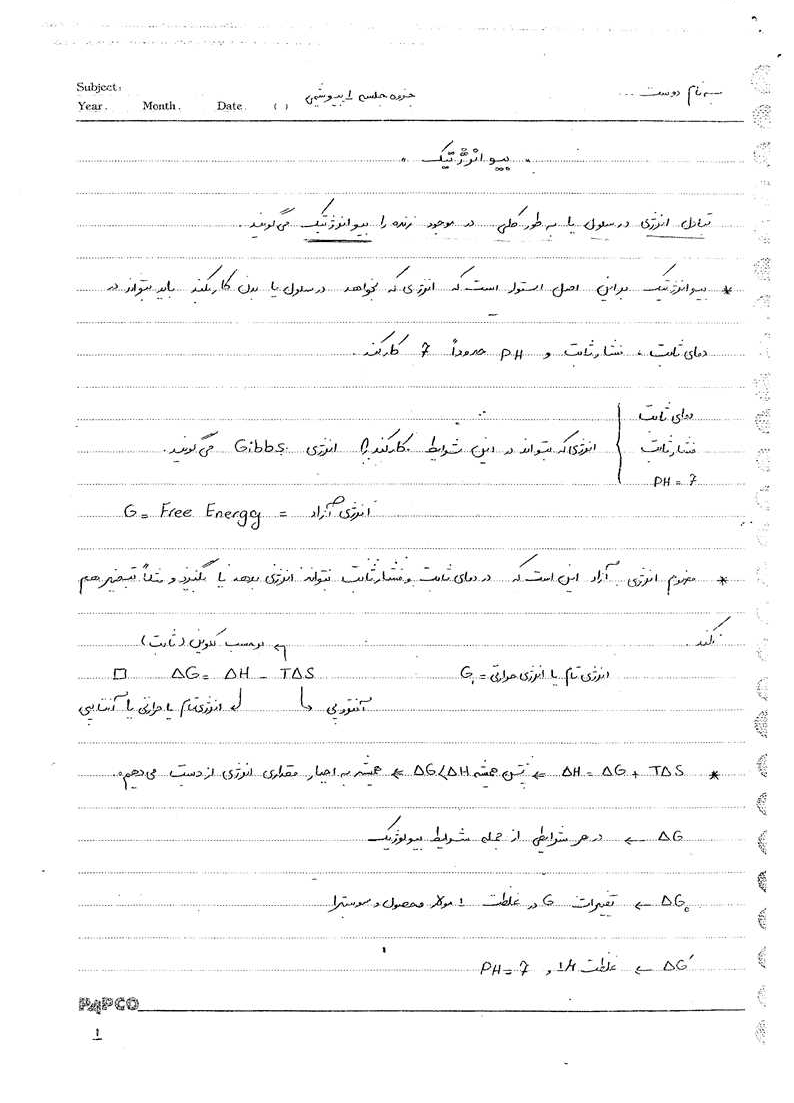 Subject:
Year. Month. Date. ( ) جزوه جلسه ۱ بیوشیمی به نام دوست ...
بیوانرژتیک
تبادل انرژی در سلول یا به طور کلی در موجود زنده را بیوانرژتیک می‌گویند.
* بیوانرژتیک براین اصل استوار است که انرژی که بخواهد در سلول یا بدن کار بکند باید بتواند در
دمای ثابت، فشار ثابت و PH حدوداً 7 کار کند.
دمای ثابت
فشار ثابت
PH = 7
انرژی که بتواند در این شرایط کار بکند را انرژی Gibbs می‌گویند.
G = Free Energy = انرژی آزاد
* مفهوم انرژی آزاد این است که در دمای ثابت و فشار ثابت بتواند انرژی بدهد یا بگیرد و مثلاً تبخیر هم
نکند.
برحسب کلوین (ثابت)
G = انرژی تام یا انرژی حرارتی
□ ΔG = ΔH - TΔS
آنتروپی انرژی تام یا حرارتی یا آنتالپی
* ΔH = ΔG + TΔS ← پس همیشه ΔG<ΔH ← همیشه به اجبار مقداری انرژی از دست می‌دهیم.
ΔG ← در هر شرایطی از جمله شرایط بیولوژیک
ΔG₀ ← تغییرات G در غلظت ۱ مولار محصول و سوبسترا
ΔG' ← غلظت 1M , PH = 7
PAPCO
۱